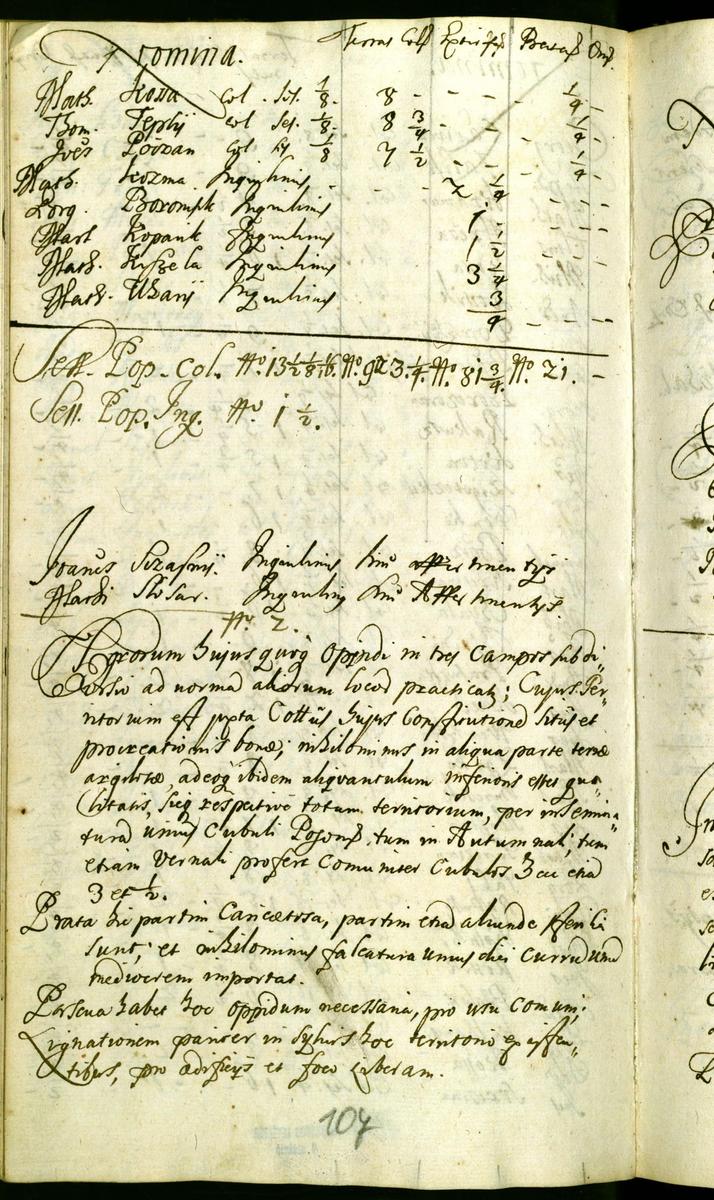 Nomina. Terras Colf Extirpf Prataf Onf.
Math. Kossa col. Sef. 1/8. 8 - - - - 1/4 -
Thom. Teplij col Sef. 1/8. 8 3/4 - - - 1/4 -
Joës Porvan col Sef 1/8 7 1/2 - - - 1/4 -
Math. Kozma Inquilinus - - - - 2 1/4 - - -
Georg. Boromik Inquilinus 1 - - - -
Mart Kopanik Inquilinus 1 1/2 - - -
Math. Inquilinus 3 1/4
Math. Uharij Inquilinus 3/4 - - -
Sess. Pop. Col. No. 13 1/2 1/8 1/16. No. 3. 1/4. No. 81 3/4. No. 21. -
Sess. Pop. Inq. No. 1 1/2.
Joanes Inquilinus sine Appertinentijs
Marti Slosar. Inquilinus sine Appertinentijs.
No. 2.
Agrorum hujus quoq Oppidi in tres Campos subdi„
visio ad normã aliorum locoȓ practicatȓ; Cujus Ter„
ritorium est juxta Cottûs hujus Constitutioneȓ Sitûs et
procreationis bonæ; nihilominus in aliqua parte terræ
argilosæ, adeoq ibidem aliqvantulum inferioris esset qua„
litatis, Sicq respective totum territorium, per insemina„
turã unius Cubuli Posonf. tum in Autumnali, tum
etiam Vernali profert Comuniter Cubulos hic etiã
3 et 1/2.
Prata hic partim Caricetosa, partim etiã aliunde sterilia
sunt; et nihilominus falcatura unius diei currũ unũ
mediocrem importat.
Pascua habet hoc Oppidum necessaria, pro usu Comuni;
Lignationem pariter in Sylvis hoc territorio existen„
tibus, pro ædificijs et foco liberam.
107